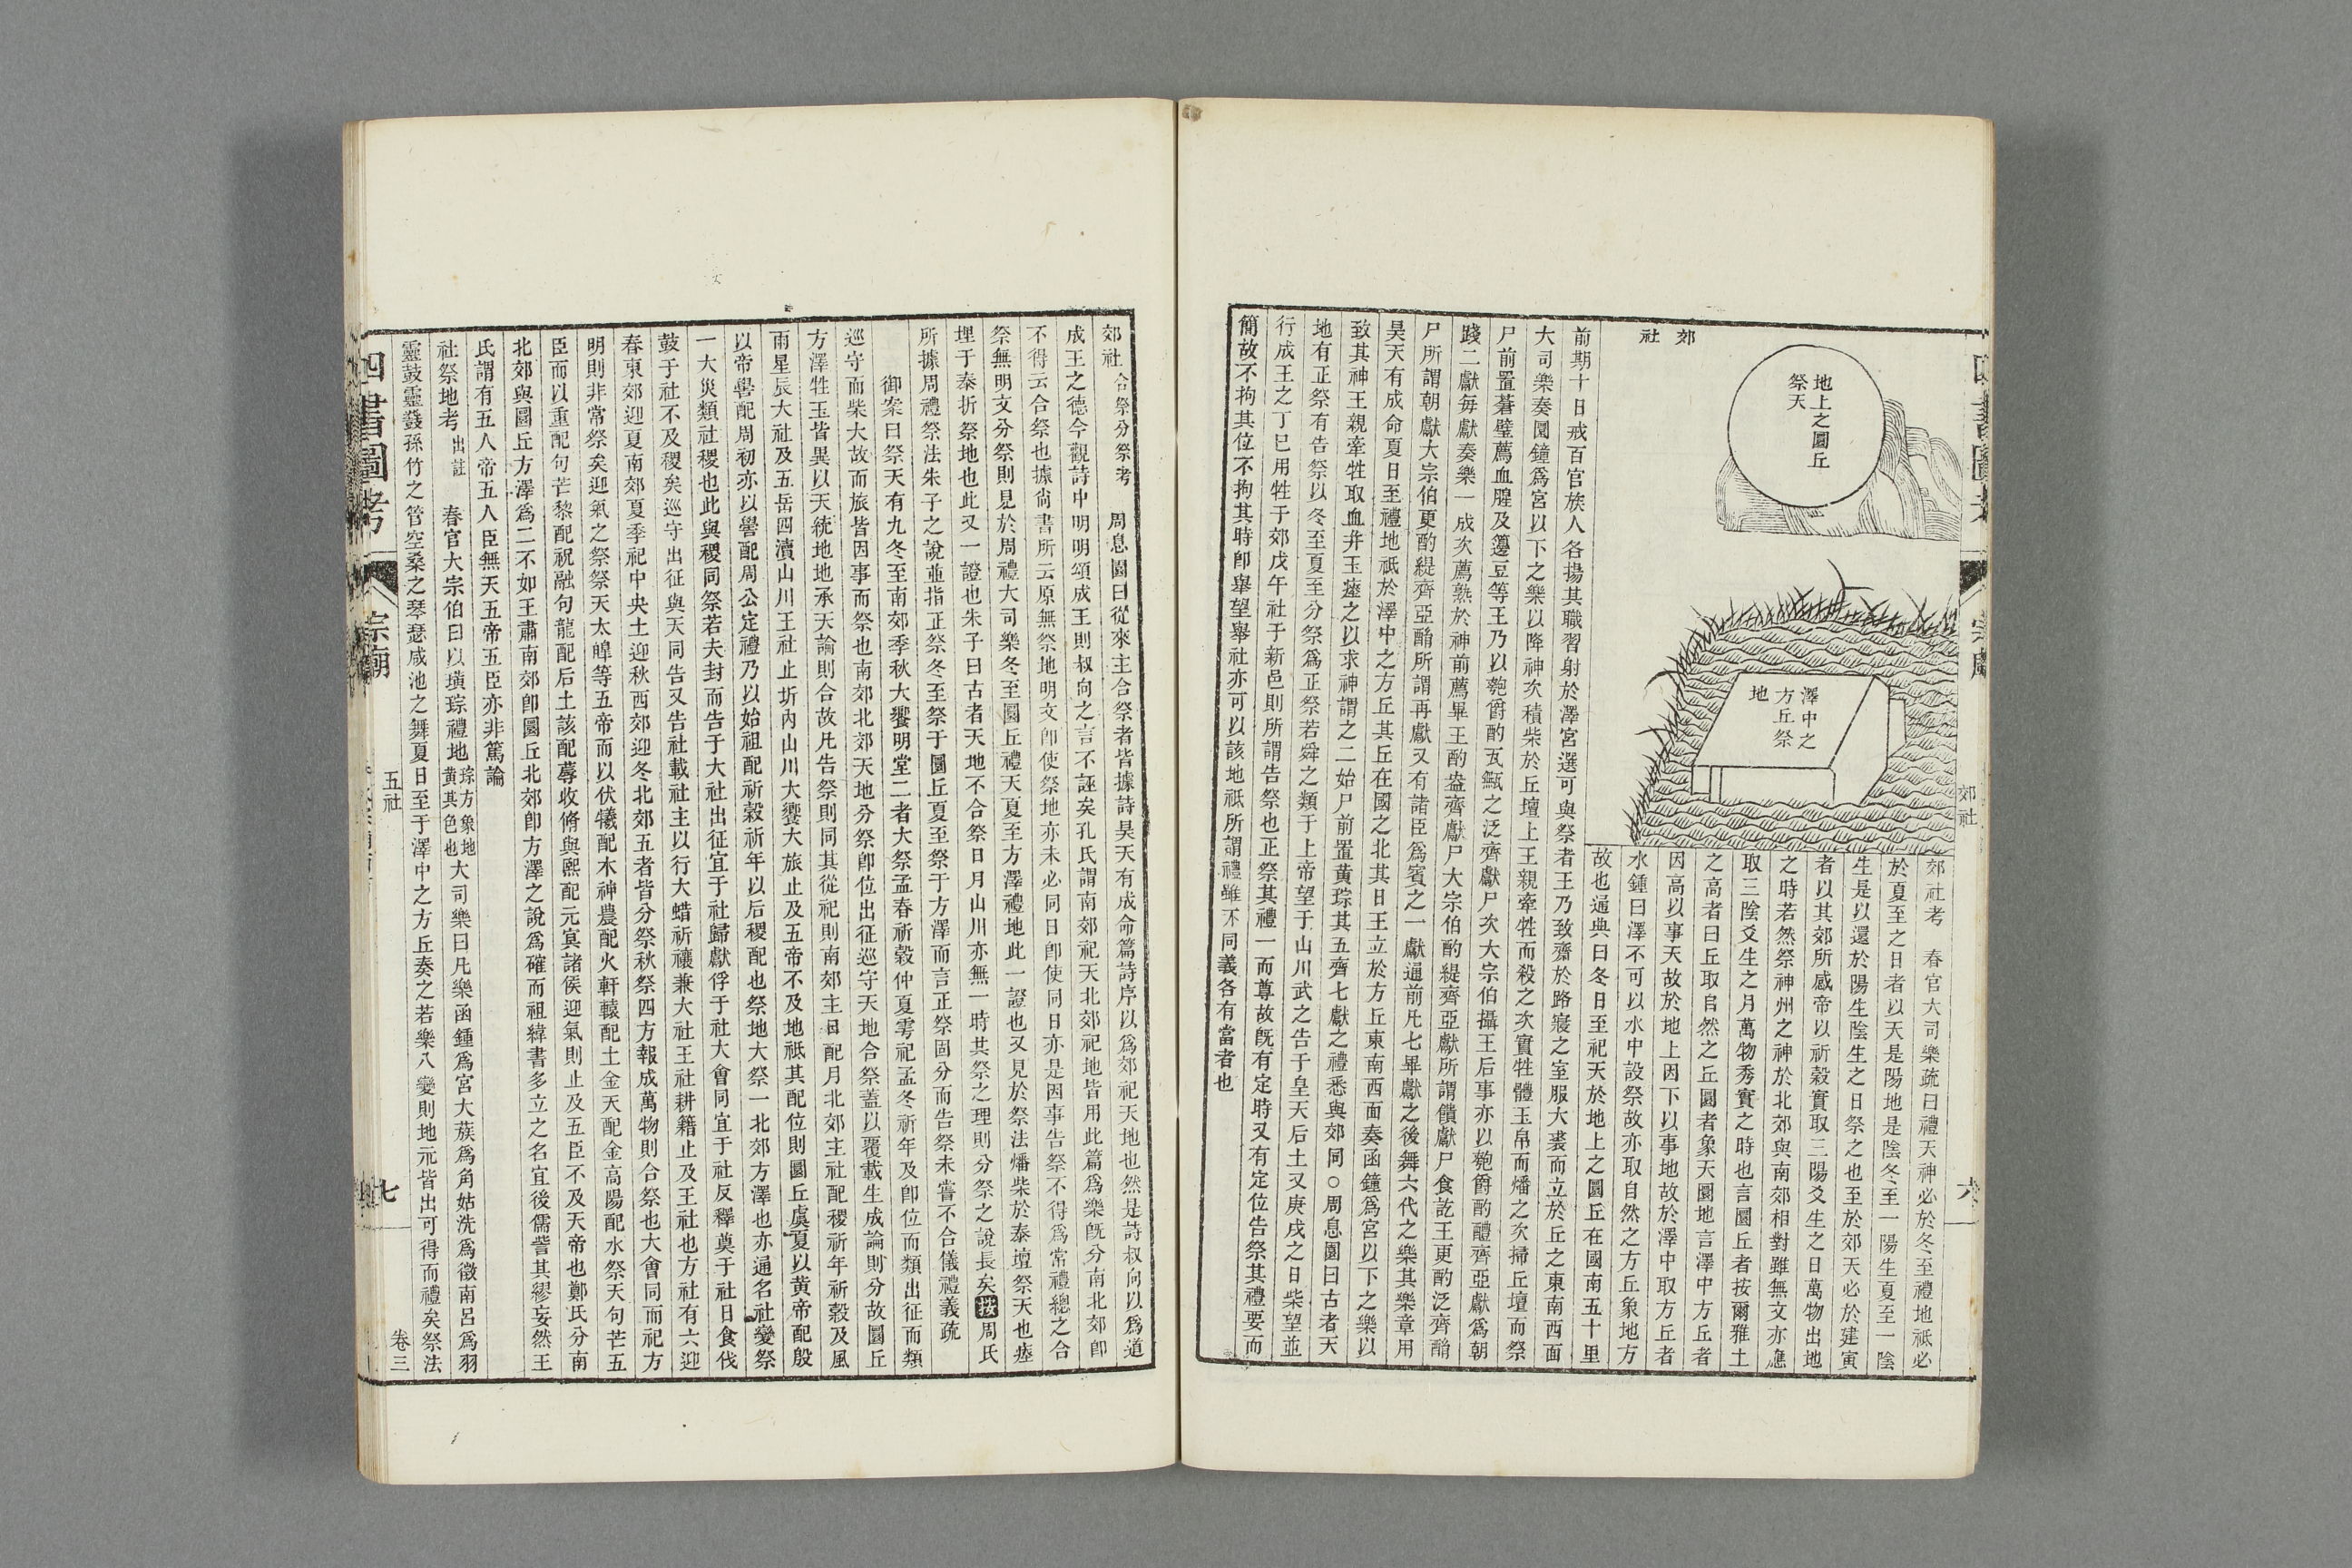 郊社
地上之圜丘
祭天
澤中之
方丘祭
地
郊社
六
郊社考　春官大司樂疏曰禮天神必於冬至禮地祇必
於夏至之日者以天是陽地是陰冬至一陽生夏至一陰
生是以還於陽生陰生之日祭之也至於郊天必於建寅
者以其郊所感帝以祈穀實取三陽爻生之日萬物出地
之時若然祭神州之神於北郊與南郊相對雖無文亦應
取三陰爻生之月萬物秀實之時也言圜丘者按爾雅土
之高者曰丘取自然之丘圜者象天圜地言澤中方丘者
因高以事天故於地上因下以事地故於澤中取方丘者
水鍾曰澤不可以水中設祭故亦取自然之方丘象地方
故也通典曰冬日至祀天於地上之圜丘在國南五十里
前期十日戒百官族人各揚其職習射於澤宮選可與祭者王乃致齋於路寢之室服大裘而立於丘之東南西面
大司樂奏圜鐘爲宮以下之樂以降神次積柴於丘壇上王親牽牲而殺之次實牲體玉帛而燔之次掃丘壇而祭
尸前置蒼璧薦血腥及籩豆等王乃以匏爵酌瓦甒之泛齊獻尸次大宗伯攝王后事亦以匏爵酌醴齊亞獻爲朝
踐二獻每獻奏樂一成次薦熟於神前薦畢王酌盎齊獻尸大宗伯酌緹齊亞獻所謂饋獻尸食訖王更酌泛齊酳
尸所謂朝獻大宗伯更酌緹齊亞酳所謂再獻又有諸臣爲賓之一獻通前凡七畢獻之後舞六代之樂其樂章用
昊天有成命夏日至禮地祇於澤中之方丘其丘在國之北其日王立於方丘東南西面奏函鐘爲宮以下之樂以
致其神王親牽牲取血幷玉瘞之以求神謂之二始尸前置黃琮其五齊七獻之禮悉與郊同○周息園曰古者天
地有正祭有告祭以冬至夏至分祭爲正祭若舜之類于上帝望于山川武之告于皇天后土又庚戌之日柴望並
行成王之丁巳用牲于郊戊午社于新邑則所謂告祭也正祭其禮一而尊故旣有定時又有定位告祭其禮要而
簡故不拘其位不拘其時卽舉望舉社亦可以該地祇所謂禮雖不同義各有當者也
郊社合祭分祭考　周息園曰從來主合祭者皆據詩昊天有成命篇詩序以爲郊祀天地也然是詩叔向以爲道
成王之德今觀詩中明明頌成王則叔向之言不誣矣孔氏謂南郊祀天北郊祀地皆用此篇爲樂旣分南北郊卽
不得云合祭也據尙書所云原無祭地明文卽使祭地亦未必同日卽使同日亦是因事告祭不得爲常禮總之合
祭無明文分祭則見於周禮大司樂冬至圜丘禮天夏至方澤禮地此一證也又見於祭法燔柴於泰壇祭天也瘞
埋于泰折祭地也此又一證也朱子曰古者天地不合祭日月山川亦無一時其祭之理則分祭之說長矣按周氏
所據周禮祭法朱子之說並指正祭冬至祭于圜丘夏至祭于方澤而言正祭固分而告祭未嘗不合儀禮義疏
御案曰祭天有九冬至南郊季秋大饗明堂二者大祭孟春祈穀仲夏雩祀孟冬祈年及卽位而類出征而類
巡守而柴大故而旅皆因事而祭也南郊北郊天地分祭卽位出征巡守天地合祭蓋以覆載生成論則分故圜丘
方澤牲玉皆異以天統地地承天論則合故凡告祭則同其從祀則南郊主日配月北郊主社配稷祈年祈穀及風
雨星辰大社及五岳四瀆山川王社止圻內山川大饗大旅止及五帝不及地祇其配位則圜丘虞夏以黃帝配殷
以帝嚳配周初亦以嚳配周公定禮乃以始祖配祈穀祈年以后稷配也祭地大祭一北郊方澤也亦通名社變祭
一大災類社稷也此與稷同祭若夫封而告于大社出征宜于社歸獻俘于社大會同宜于社反釋奠于社日食伐
鼓于社不及稷矣巡守出征與天同告又告社載社主以行大蜡祈禳兼大社王社耕籍止及王社也方社有六迎
春東郊迎夏南郊夏季祀中央土迎秋西郊迎冬北郊五者皆分祭秋祭四方報成萬物則合祭也大會同而祀方
明則非常祭矣迎氣之祭祭天太皥等五帝而以伏犧配木神農配火軒轅配土金天配金高陽配水祭天句芒五
臣而以重配句芒黎配祝融句龍配后土該配蓐收脩與熙配元冥諸侯迎氣則止及五臣不及天帝也鄭氏分南
北郊與圜丘方澤爲二不如王肅南郊卽圜丘北郊卽方澤之說爲確而祖緯書多立之名宜後儒訾其繆妄然王
氏謂有五人帝五人臣無天五帝五臣亦非篤論
社祭地考出註　春官大宗伯曰以璜琮禮地琮方象地黃其色也大司樂曰凡樂函鍾爲宮大蔟爲角姑洗爲徵南呂爲羽
靈鼓靈鼗孫竹之管空桑之琴瑟咸池之舞夏日至于澤中之方丘奏之若樂八變則地示皆出可得而禮矣祭法
四書圖考
宗廟
五社
七
卷三